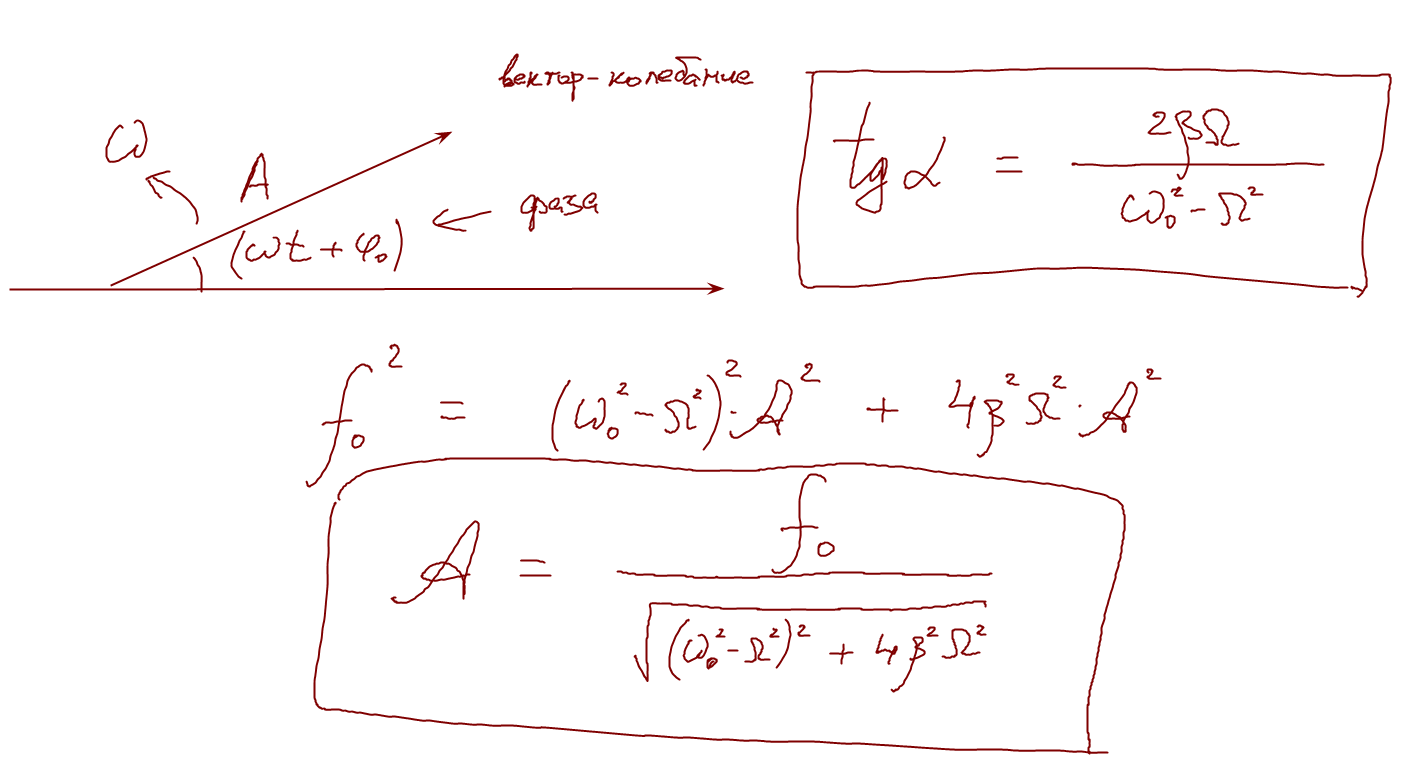 вектор-колебание
ω
A
(ωt + φ₀) ← фаза
tg α = 2βΩ / (ω₀² - Ω²)
f₀² = (ω₀² - Ω²)² · A² + 4β²Ω² · A²
A = f₀ / √((ω₀² - Ω²)² + 4β²Ω²)